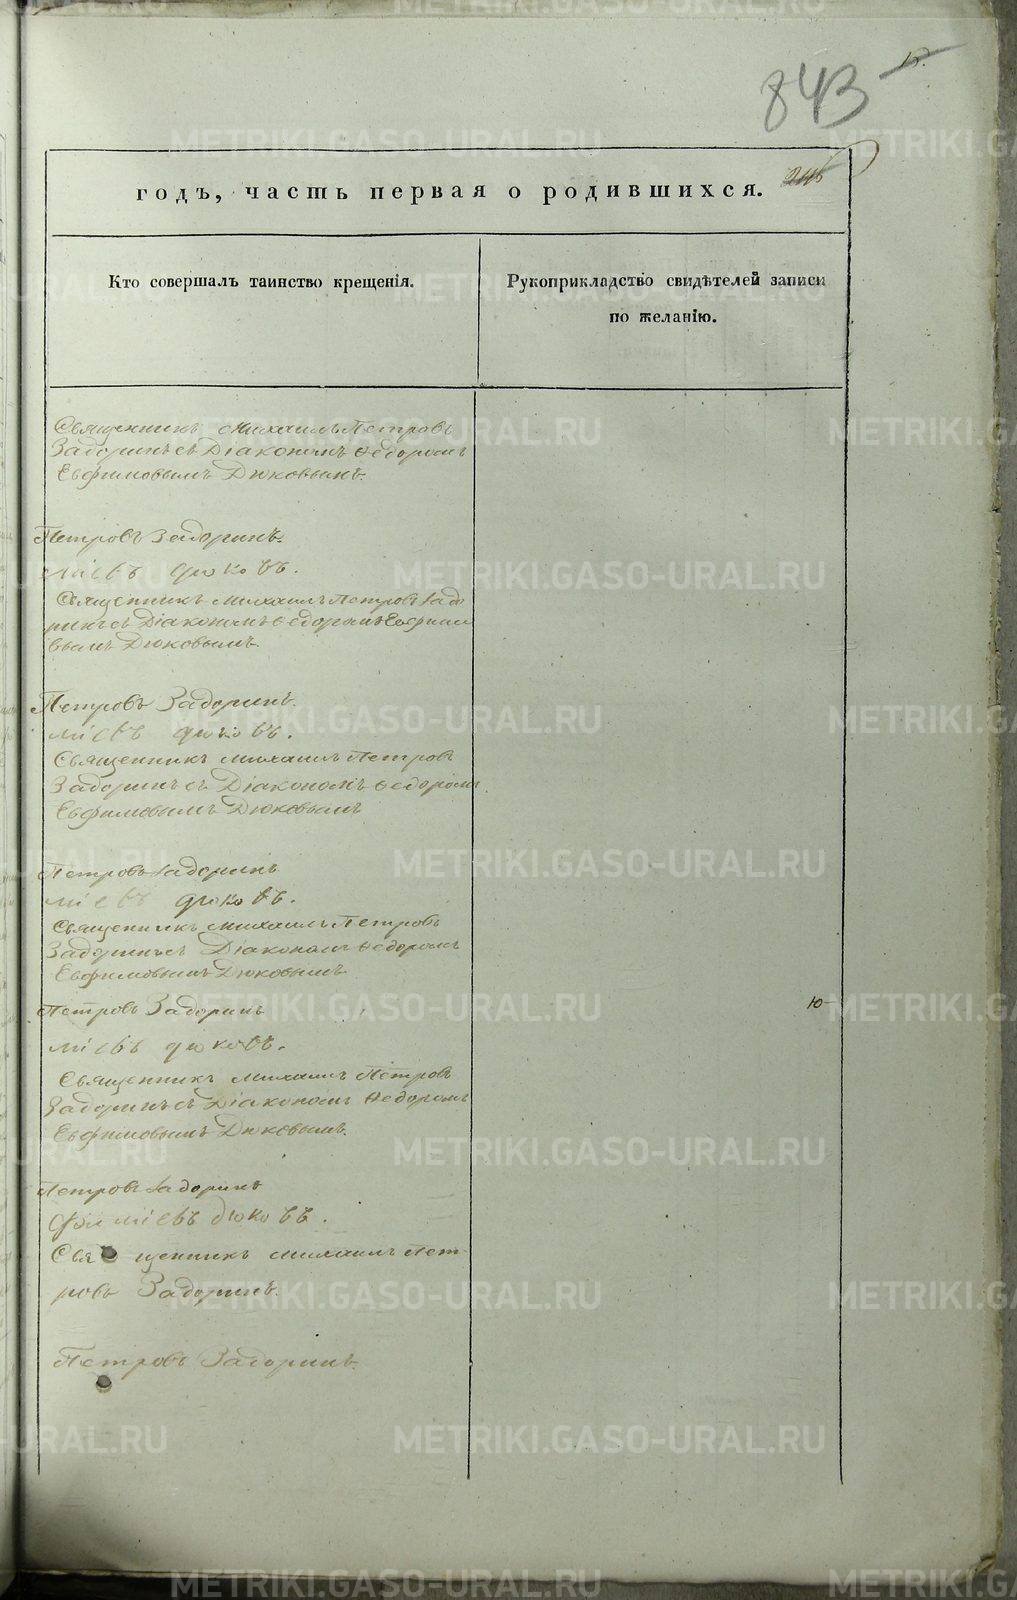 843
годъ, часть первая о родившихся.
Кто совершалъ таинство крещенія.
Рукоприкладство свидѣтелей записи
по желанію.
Священникъ Михаилъ Петровъ
Задоринъ съ Діакономъ Ѳедоромъ
Евфимовымъ Дюковымъ.
Петровъ Задоринъ.
міевъ Дюковъ.
Священникъ Михаилъ Петровъ Задо
ринъ съ Діакономъ Ѳедоромъ Евфимо
вымъ Дюковымъ.
Петровъ Задоринъ.
міевъ Дюковъ.
Священникъ Михаилъ Петровъ
Задоринъ съ Діакономъ Ѳедоромъ
Евфимовымъ Дюковымъ
Петровъ Задоринъ
міевъ Дюковъ.
Священникъ Михаилъ Петровъ
Задоринъ съ Діакономъ Ѳедоромъ
Евфимовымъ Дюковымъ
Петровъ Задоринъ
Ю
міевъ Дюковъ.
Священникъ Михаилъ Петровъ
Задоринъ съ Діакономъ Ѳедоромъ
Евфимовымъ Дюковымъ.
Петровъ Задоринъ
міевъ Дюковъ.
Священникъ Михаилъ Пет
ровъ Задоринъ.
Петровъ Задоринъ.
METRIKI.GASO-URAL.RU